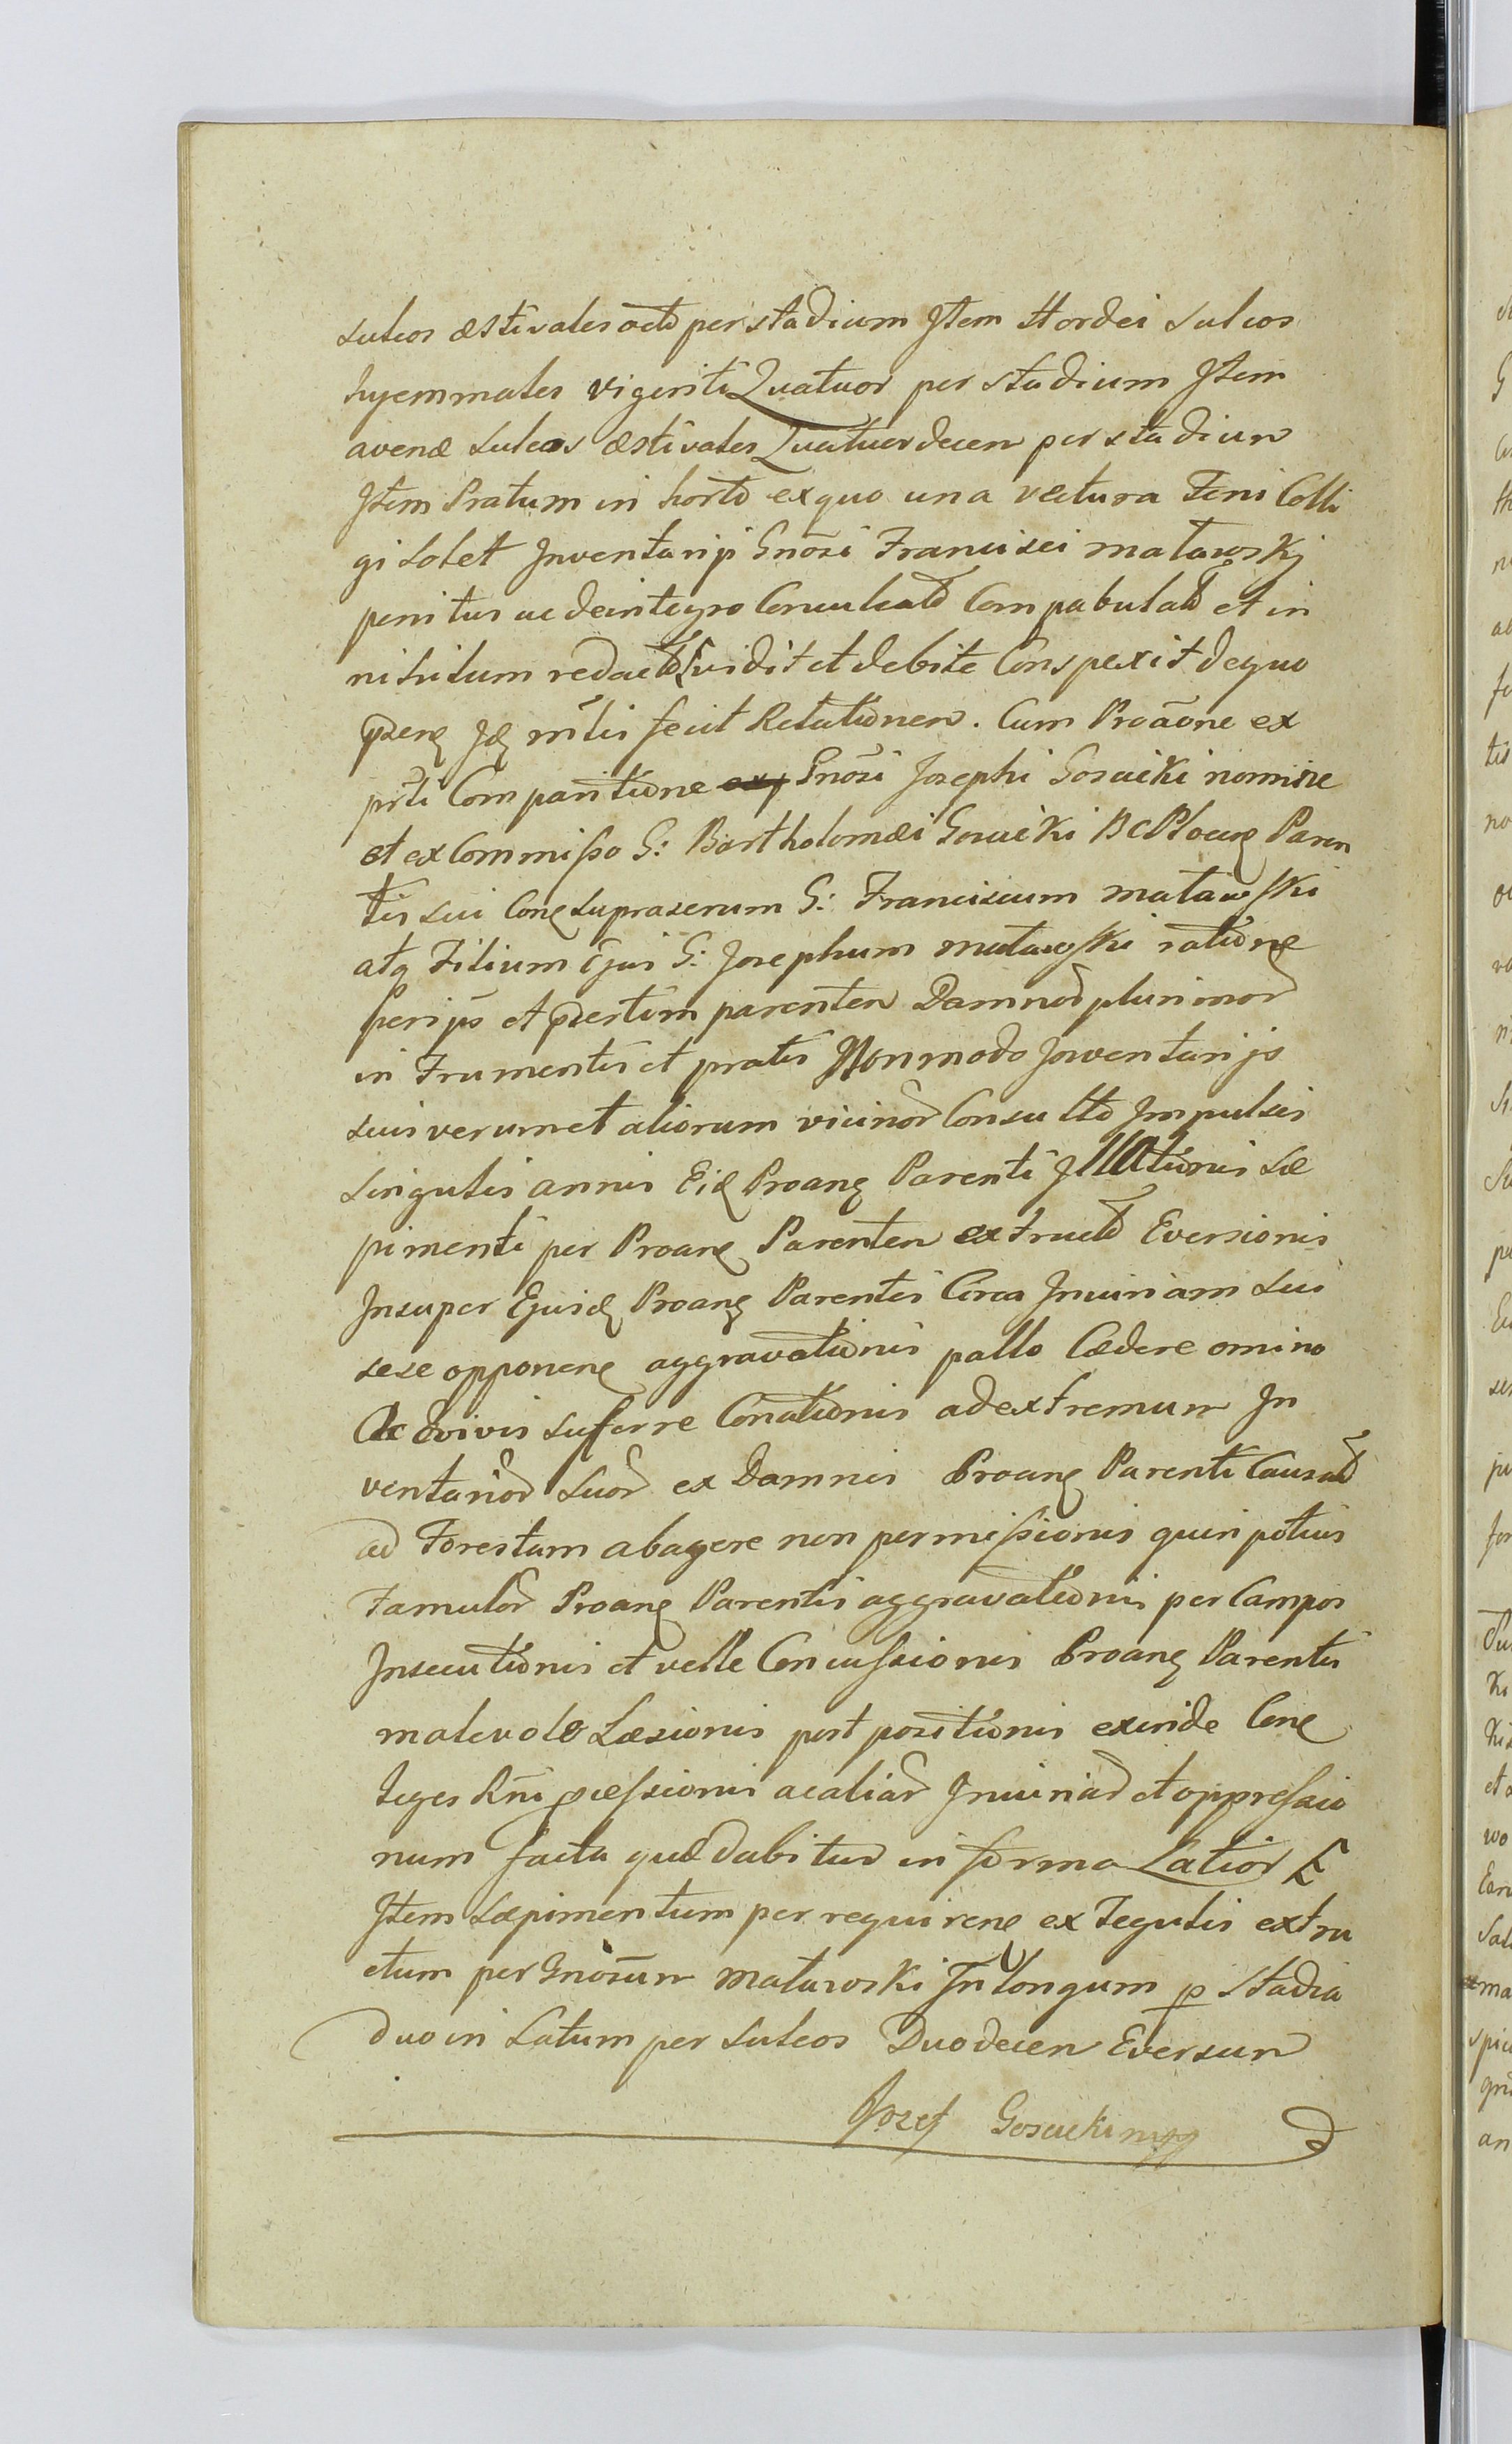 sulcos æstivales octo per stadium Jtem Hordei sulcos
hyemmales viginti Quatuor per stadium Jtem
avenæ sulcos æstivales Quatuordecem per stadium
Jtem Pratum in horto ex quo una vectura Feni Colli
gi solet Jnventarijs Gnosi Francisci matawskj
penitus ac deintegro Conculcato Compabulato et in
nihilum redacto vidit et debite Conspexit de quo
præns Jdq mtlis fecit Relationem. Cum Proãone ex
prti Comparitione Gnosi Josephi Gosucki nomine
et ex Commisso G: Bartholomæi Gosucki BCPlocens Paren
tis sui Conq suprascrum G: Franciscum matawski
atq Filium Ejus G: Josephum matawski ratione
et præsertim parentem Damnor plurimor
in Frumentis et pratis Nonmodo Jnventarijs
suis verumet aliorum vicinor Consulto Jmpulsis
singulis annis Eid Proang Parenti Jllationis sæ
pimenti per Proang Parentem extructo Eversionis
Jnsuper Ejusd Proang Parentis Circa Jniuriam sui
sese opponeng aggravationis pallo Cædere omino
Ac evivis sufferre Conationis ad extremum Jn
ventarior suor ex Damnis Proang Parenti Causat
ad Forestam abagere non permissionis quin potius
Famulor Proang Parentis aggravationis per Campos
Jnsecutionis et velle Concussionis Proang Parentis
malevole Læsionis post positionis exinde Conq
leges Rni præssionis ac aliar Jniuriar et oppressio
num facta quæ dabitur in forma Latior
Jtem sæpimentum per requireng ex Tegulis extru
ctum per Gnosum matawski Jn longum p stadia
duo in Latum per sulcos Duodecem Eversum
Jozef Gosucki mpp